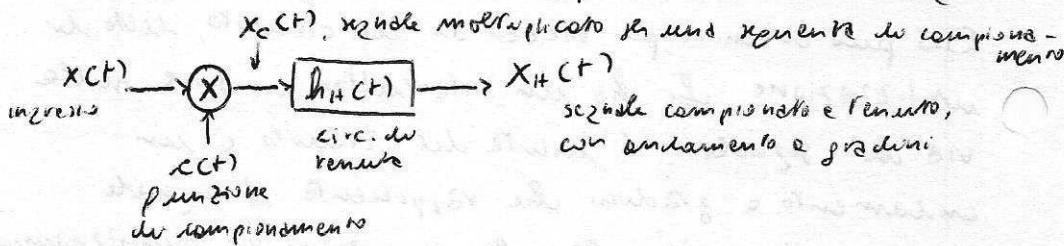 x_c(t), segnale moltiplicato per una sequenza di campiona-
mento
x(t) → X → h_H(t) → x_H(t)
ingresso
segnale campionato e tenuto,
con andamento a gradini
circ. di
tenuta
c(t)
funzione
di campionamento